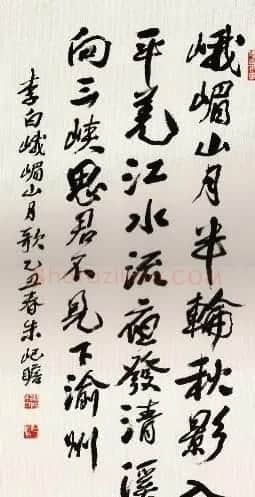 峨嵋山月半輪秋影入
平羌江水流夜發清溪
向三峡思君不見下渝州
李白峨嵋山月歌乙丑春朱屺瞻